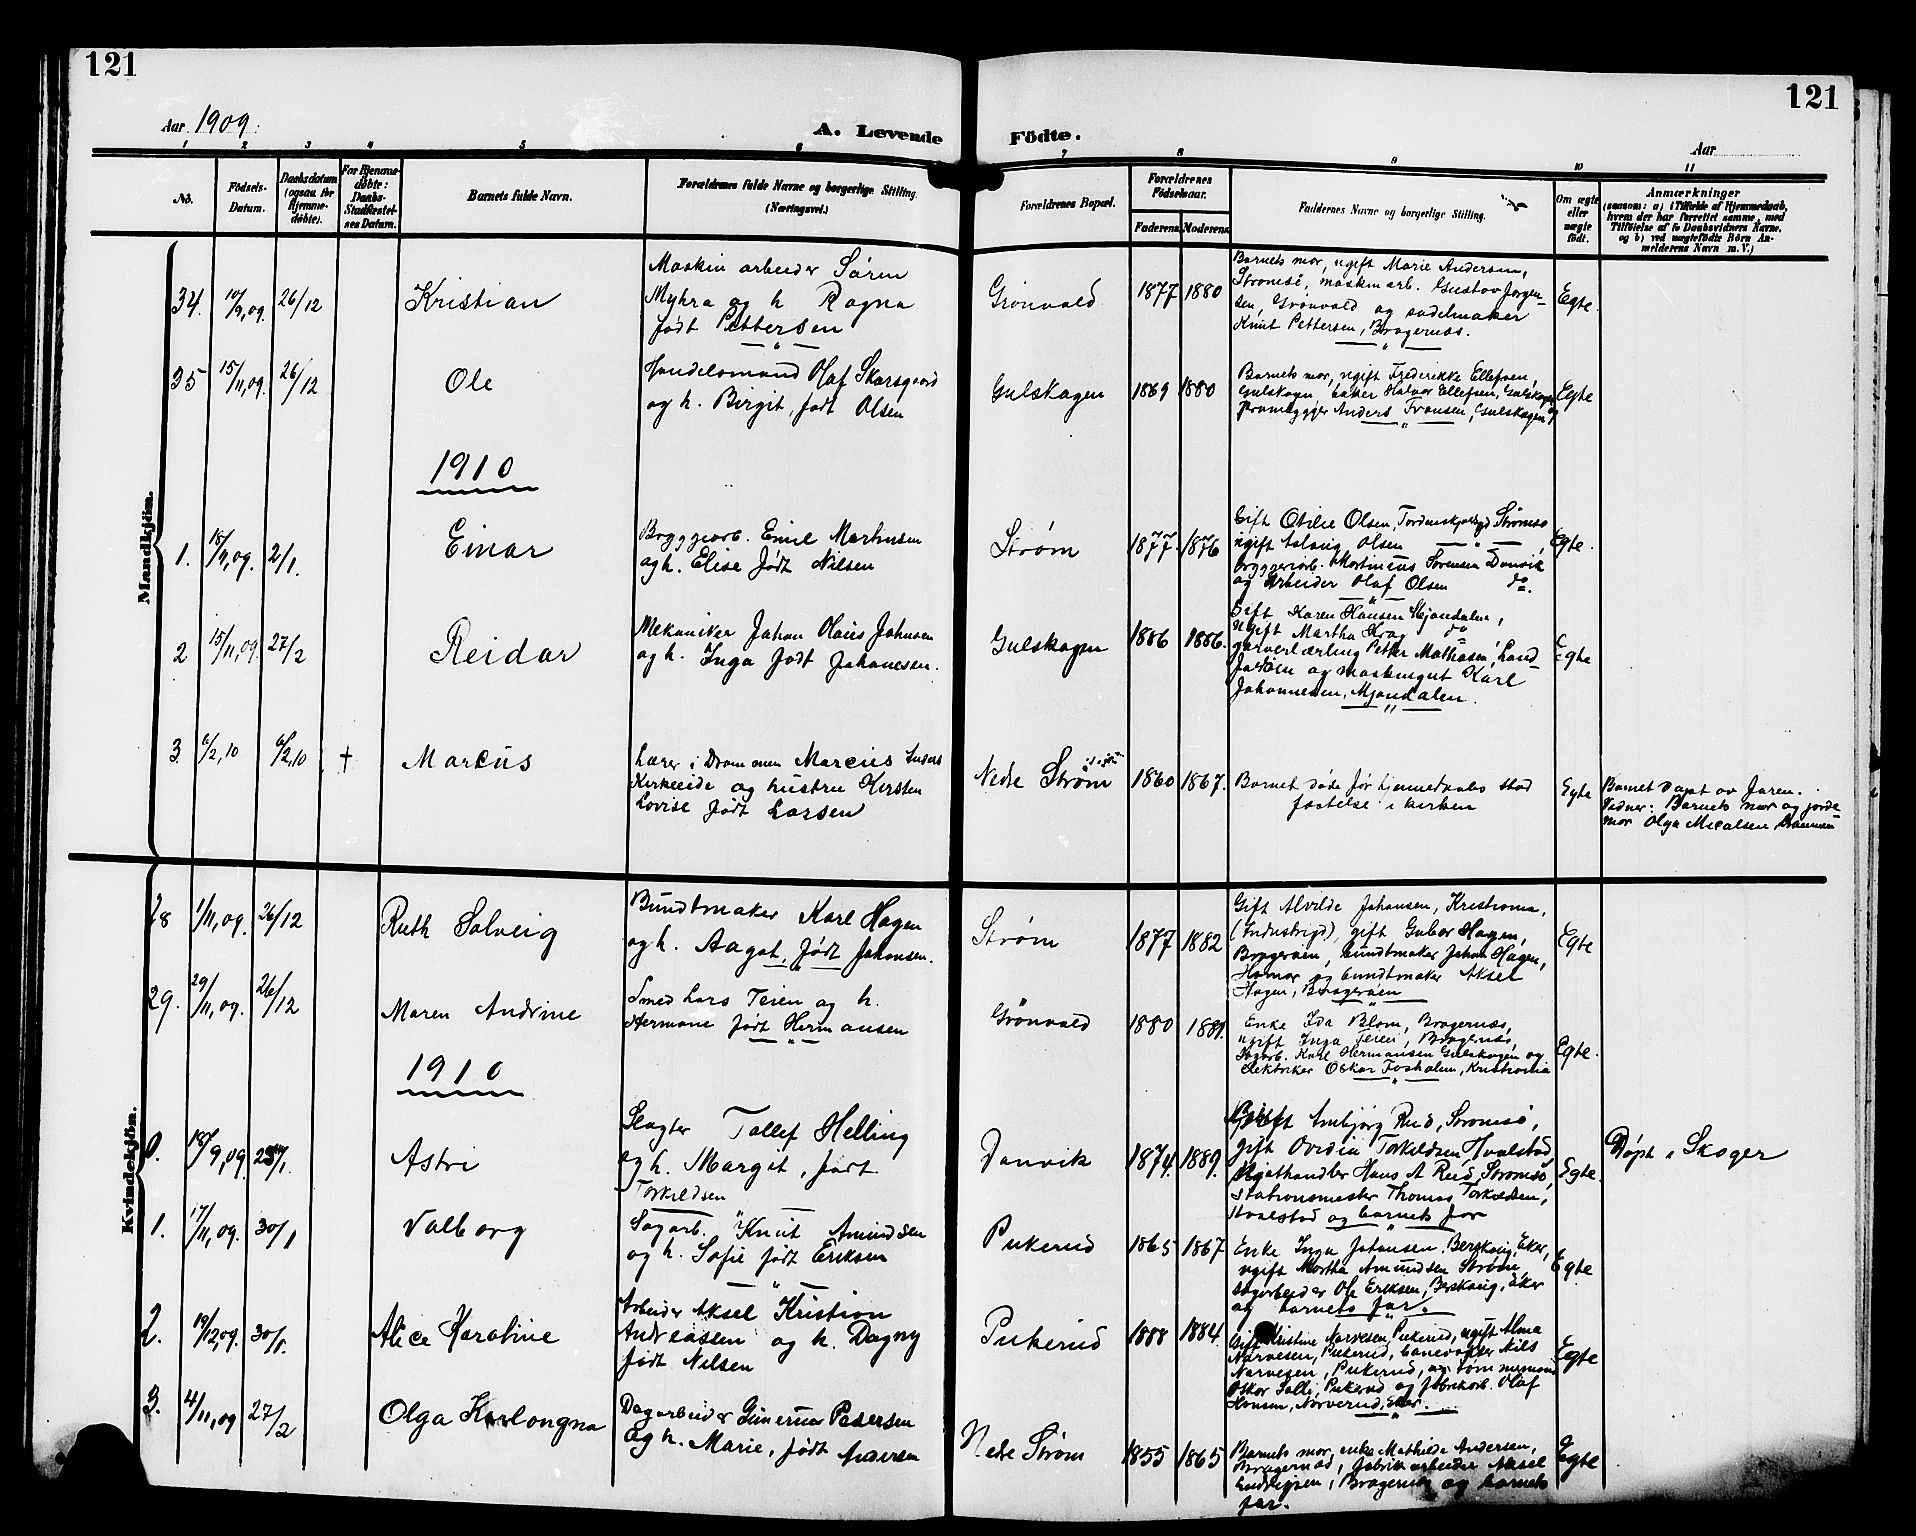 121
121
Aar 1909.
A. Levende Födte.
Aar
1 2 3 4 5 6 7 8 9 10 11
No.
Födsels-
Datum.
Daabsdatum
(ogsaa for
Hjemme-
döbte).
For Hjemme-
döbte:
Daabs-
Stadfæstel-
ses Datum.
Barnets fulde Navn.
Forældrenes fulde Navne og borgerlige Stilling.
(Næringsvei.)
Forældrenes Bopæl.
Forældrenes
Födselsaar.
Faderens. Moderens.
Faddernes Navne og borgerlige Stilling.
Om ægte
eller
uægte
födt.
Anmærkninger
(saasom: a) i Tilfælde af Hjemmedaab,
hvem der har forrettet samme, med
Tilföielse af to Daabsvidners Navne,
og b) ved uægtefödte Börn An-
melderens Navn m. V.)
Mandkjön.
34. 10/9,09. 26/12
Kristian
Maskinarbeider Søren
Myhra og h. Ragna
født Pettersen
Grönvold
1877 1880
Barnets mor, ugift Marie Andersen,
Strømsö, maskinarb. Gustav Jørgen-
sen, Grönvold og sadelmaker
Knut Pettersen, Bragernæs.
Egte.
35 15/11,09. 26/12
Ole
Handelsmand Olaf Skarsgaard
og h. Birgit, født Olsen
Gulskogen
1869 1880
Barnets mor, ugift Frederikke Ellefsen,
Gulskogen, Halvor Ellefsen, Gulskogen og
Anders Fransen, Gulskogen
Egte
1910
1. 18/9,09. 2/1.
Einar
Bryggeriarb. Emil Martinsen
og h. Elise født Nilsen
Strøm
1877. 1876
Gift Otilie Olsen, Strømsø
ugift Solveig Olsen
bryggeriarb. Martinius Sørensen Danvik
og arbeider Olaf Olsen do.
Egte.
2 15/11,09. 27/2
Reidar
Mekaniker Johan Olaus Johnsen
og h. Inga født Johanessen.
Gulskogen
1886 1886.
Gift Karen Hansen Mjøndalen,
ugift Martha Krag do
garverlærling Petter Mathisen, Land-
og maskingut Karl
Johannesen, Mjøndalen.
Egte
3. 6/2,10 6/2,10 †
Marcus
Lærer i Drammen Marcus
Kirkeeide og hustru Kirsten
Lovise født Larsen
Nedre Strøm
1860 1867.
Barnet døde før hjemmedaabs stad
fæstelse i kirken
Egte
Barnet døpt av faren.
Vidner: Barnets mor og jorde-
mor Olga Micalsen Drammen
Kvindekjön.
28 1/11,09. 26/12
Ruth Solveig
Bundtmaker Karl Hagen
og h. Aagot, født Johansen.
Strøm
1877 1882
Gift Alvilde Johansen, Kristiania,
(Industrigd), gift Gubør Hagen,
Bragerøen, bundtmaker Johan Hagen,
Hamar og bundtmaker Aksel
Hagen, Bragerøen
Egte
29. 29/11,09. 26/12
Maren Andrine
Smed Lars Teien og h.
Hermane født Hermansen
Grönvold
1880 1889.
Enke Ida Blom, Bragernæs,
ugift Inga Teien, Bragernæs,
Sagarb. Karl Hermansen Gulskogen og
elektriker Oskar Fosholm, Kristiania
Egte.
1910
0. 18/9,09. 25/1.
Astri
Slagter Tollef Helling
og h. Margit, født
Torkildsen
Danvik
1874. 1889.
Gift Ambjørg Rud, Strømsö,
gift Ovidia Torkildsen, Hvalstad,
Hans A Rud, Strømsö,
Stationsmester Thomas Torkildsen,
Hvalstad og barnets far
Egte.
Døpt i Skoger
1. 17/11,09. 30/1
Valborg
Sagarb. Knut Amundsen
og h. Sofie født Eriksen
Pukerud
1865 1867
Enke Inga Johansen, Berskaug, Eker,
ugift Martha Amundsen Strøm,
sagarbeider Ole Eriksen, Berskaug, Eker
og barnets far.
Egte.
2. 19/12,09. 30/1.
Alice Karoline
Arbeider Aksel Kristian
Andreassen og h. Dagny
født Nilsen
Pukerud
1888 1884.
Gift Kristine Narvesen, Pukerud, ugift Alma
Narvesen, Pukerud, banevogter Nils
Narvesen, Pukerud, og tømmermand
Oskar Salli, Pukerud og fabrikarb. Olaf
Hansen, Narverud, Eker.
Egte
3. 4/11,09 27/2
Olga Karlongna
Dagarbeider Gunerius Pedersen
og h. Marie, født Andersen
Nedre Strøm
1855 1865
Barnets mor, enke Mathilde Andersen,
Bragernæs, fabrikarbeider Aksel
Ludvigsen, Bragernæs og barnets
far.
Egte